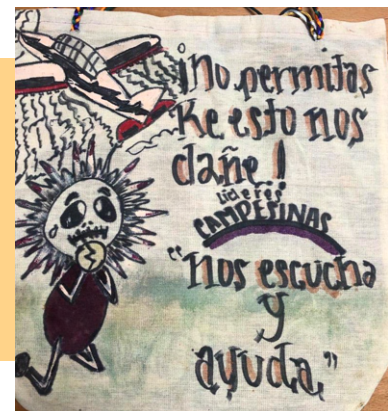 ¡No permitas
Ke esto nos
dañe!
Lideres
CAMPESINAS
"Nos escucha
y
ayuda."